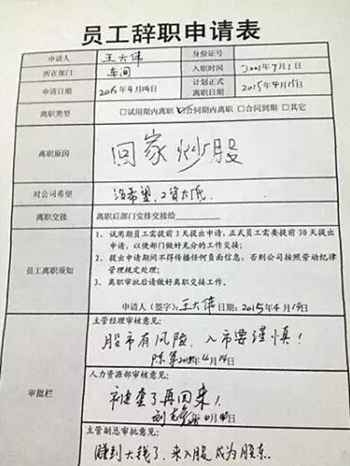 员工辞职申请表
申请人 王大伟 身份证号
所在部门 车间 入职时间 年7月1日
申请日期 2015年4月14日 计划正式离职日期 2015年4月15日
离职类型 □试用期内离职 ☑合同期内离职 □合同到期 □其它
离职原因 回家炒股
对公司希望 没希望,工资太低.
离职交接 离职后部门安排交接给
员工离职须知
1、试用期员工需提前3天提出申请,正式员工需要提前30天提出
申请,以便部门做好充分的工作交接;
2、提出申请期间不得传播任何负面信息,否则公司按照劳动纪律
管理规定处理;
3、离职审批后请做好离职交接工作。
申请人(签字):王大伟 日期:2015年4月14日
审批栏
主管经理审核意见:
股市有风险,入市要谨慎!
4月14日
人力资源部审核意见:
被套了再回来!
主管副总审批意见:
赚到大钱了,来入股成为股东.